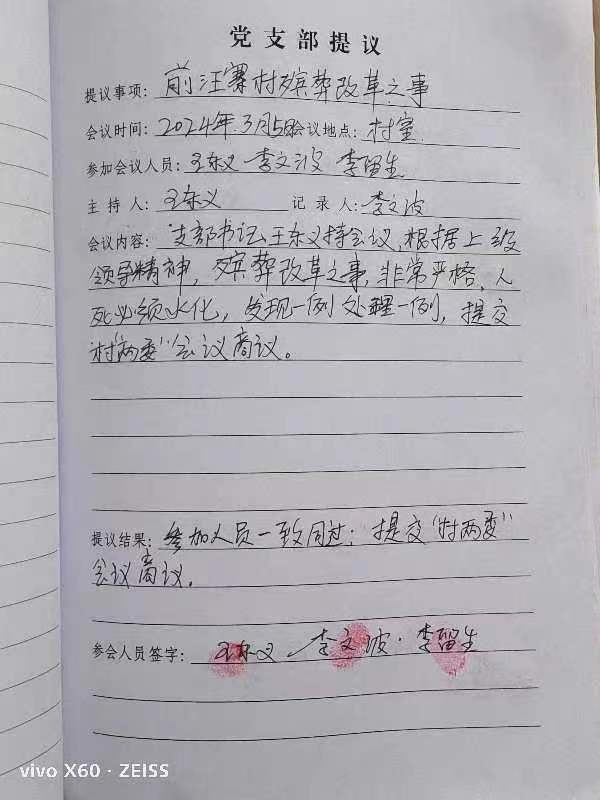 党支部提议
提议事项: 前汪寨村殡葬改革之事
会议时间: 2024年3月5日会议地点: 村室
参加会议人员: 王东义 李文波 李留生
主持人: 王东义 记录人: 李文波
会议内容: 支部书记王东义持会议、根据上级
领导精神, 殡葬改革之事, 非常严格, 人
死必须火化, 发现一例处理一例, 提交
村“两委”会议商议。
提议结果: 参加人员一致同过; 提交“村两委”
会议商议.
参会人员签字: 王东义 李文波 · 李留生
vivo X60 · ZEISS